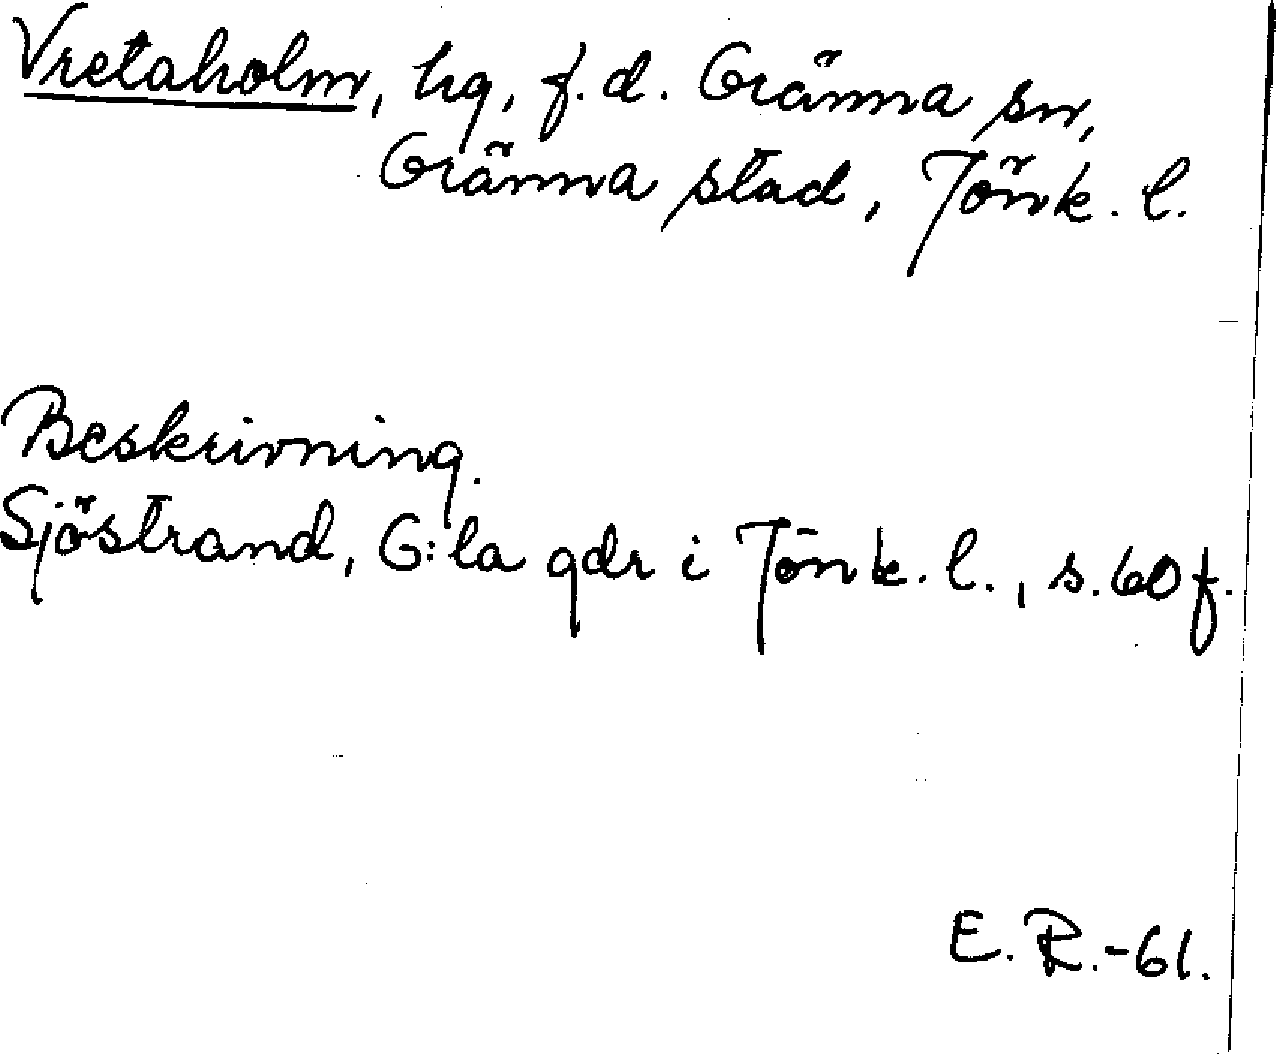 Vretaholm, hg, f.d. Gränna sn,
Gränna stad, Jönk. l.
Beskrivning.
Sjöstrand, G:la gdr i Jönk. l., s. 60 f.
E. R.-61.